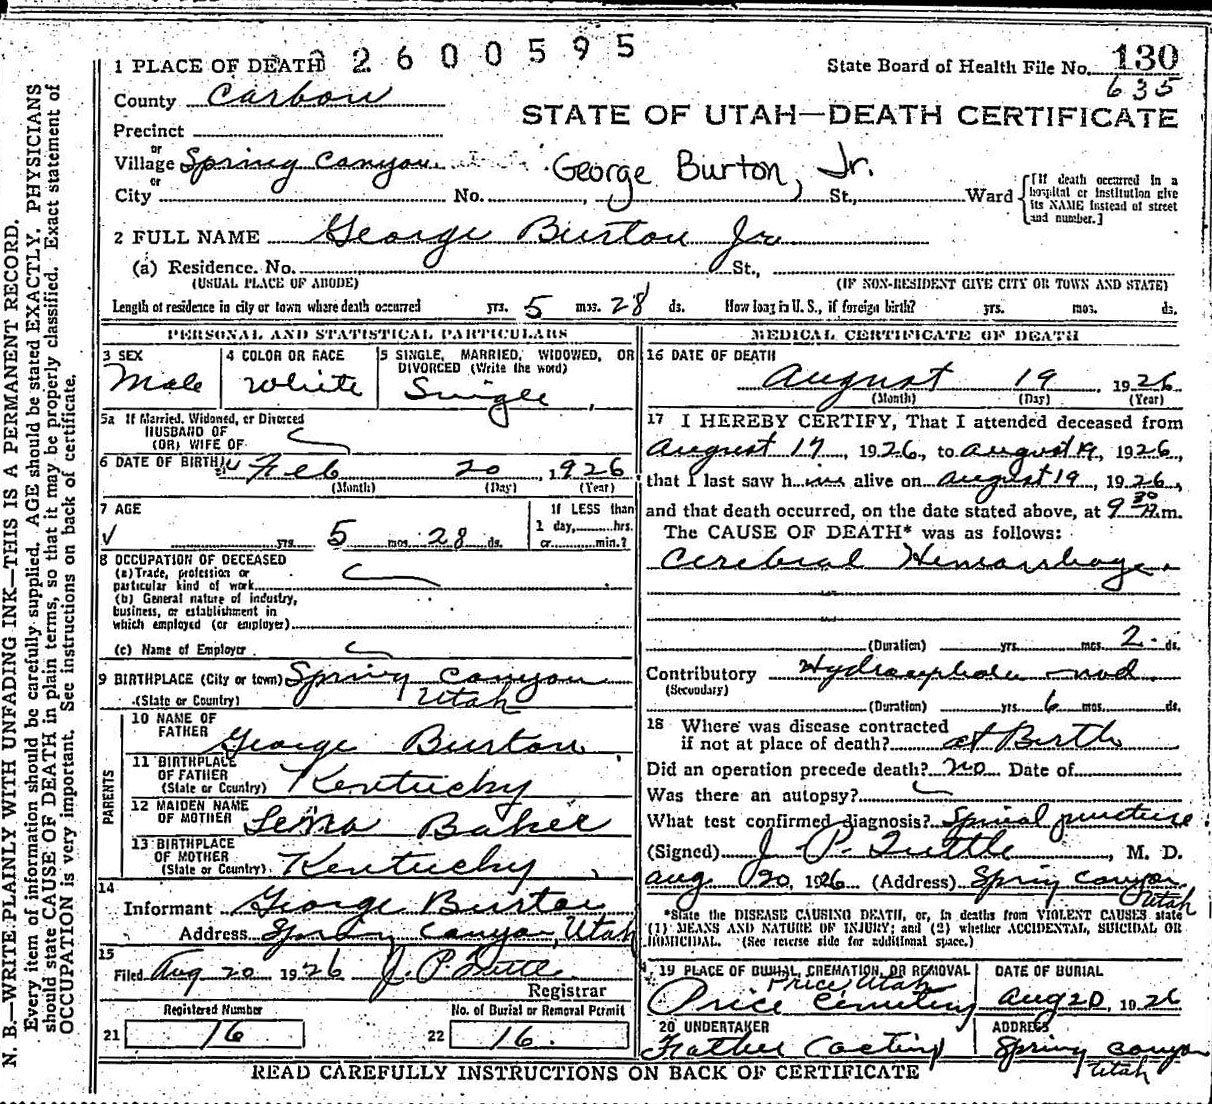 N. B.—WRITE PLAINLY WITH UNFADING INK—THIS IS A PERMANENT RECORD.
Every item of information should be carefully supplied. AGE should be stated EXACTLY. PHYSICIANS
should state CAUSE OF DEATH in plain terms, so that it may be properly classified. Exact statement of
OCCUPATION is very important. See instructions on back of certificate.
1 PLACE OF DEATH 2600595
State Board of Health File No. 130
635
County Carbon
STATE OF UTAH—DEATH CERTIFICATE
Precinct
or
Village Spring Canyon George Burton, Jr.
or
City No. St., Ward
[If death occurred in a
hospital or institution give
its NAME instead of street
and number.]
2 FULL NAME George Burton Jr.
(a) Residence. No. St.,
(USUAL PLACE OF ABODE) (IF NON-RESIDENT GIVE CITY OR TOWN AND STATE)
Length of residence in city or town where death occurred yrs. 5 mos. 28 ds. How long in U. S., if foreign birth? yrs. mos. ds.
PERSONAL AND STATISTICAL PARTICULARS
3 SEX
Male
4 COLOR OR RACE
White
5 SINGLE, MARRIED, WIDOWED, OR
DIVORCED (Write the word)
Single
5a If Married, Widowed, or Divorced
HUSBAND OF
(OR) WIFE OF
6 DATE OF BIRTH Feb 20, 1926
(Month) (Day) (Year)
7 AGE
yrs. 5 mos. 28 ds.
If LESS than
1 day, hrs.
or min.?
8 OCCUPATION OF DECEASED
(a) Trade, profession or
particular kind of work
(b) General nature of industry,
business, or establishment in
which employed (or employer)
(c) Name of Employer
9 BIRTHPLACE (City or town) Spring Canyon
(State or Country) Utah
PARENTS
10 NAME OF
FATHER George Burton
11 BIRTHPLACE
OF FATHER
(State or Country) Kentucky
12 MAIDEN NAME
OF MOTHER Lena Baker
13 BIRTHPLACE
OF MOTHER
(State or Country) Kentucky
14
Informant George Burton
Address Spring Canyon, Utah
15
Filed Aug 20 1926 J. P. Tuttle
Registrar
Registered Number No. of Burial or Removal Permit
21 16 22 16.
MEDICAL CERTIFICATE OF DEATH
16 DATE OF DEATH
August 19, 1926
(Month) (Day) (Year)
17 I HEREBY CERTIFY, That I attended deceased from
August 17, 1926, to August 19, 1926,
that I last saw him alive on August 19, 1926,
and that death occurred, on the date stated above, at 9 30 A.m.
The CAUSE OF DEATH* was as follows:
Cerebral Hemorrhage.
(Duration) yrs. mos. 2 ds.
Contributory
(Secondary)
(Duration) yrs. 6 mos. ds.
18 Where was disease contracted
if not at place of death? at Birth
Did an operation precede death? no Date of
Was there an autopsy?
What test confirmed diagnosis? Spinal puncture
(Signed) J. P. Tuttle, M. D.
Aug 20, 1926 (Address) Spring Canyon
Utah
*State the DISEASE CAUSING DEATH, or, in deaths from VIOLENT CAUSES, state
(1) MEANS AND NATURE OF INJURY; and (2) whether ACCIDENTAL, SUICIDAL OR
HOMICIDAL. (See reverse side for additional space.)
19 PLACE OF BURIAL, CREMATION, OR REMOVAL
Price Utah
Price Cemetery
DATE OF BURIAL
Aug 20, 1926
20 UNDERTAKER
Father Acting
ADDRESS
Spring Canyon
Utah
READ CAREFULLY INSTRUCTIONS ON BACK OF CERTIFICATE